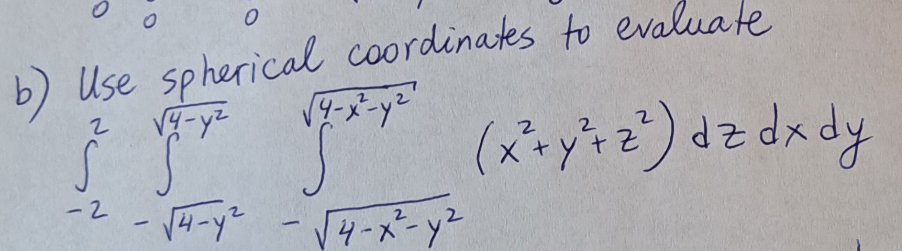 0 0 0
b) Use spherical coordinates to evaluate
∫_{-2}^{2} ∫_{-√(4-y²)}^{√(4-y²)} ∫_{-√(4-x²-y²)}^{√(4-x²-y²)} (x²+y²+z²) dz dx dy